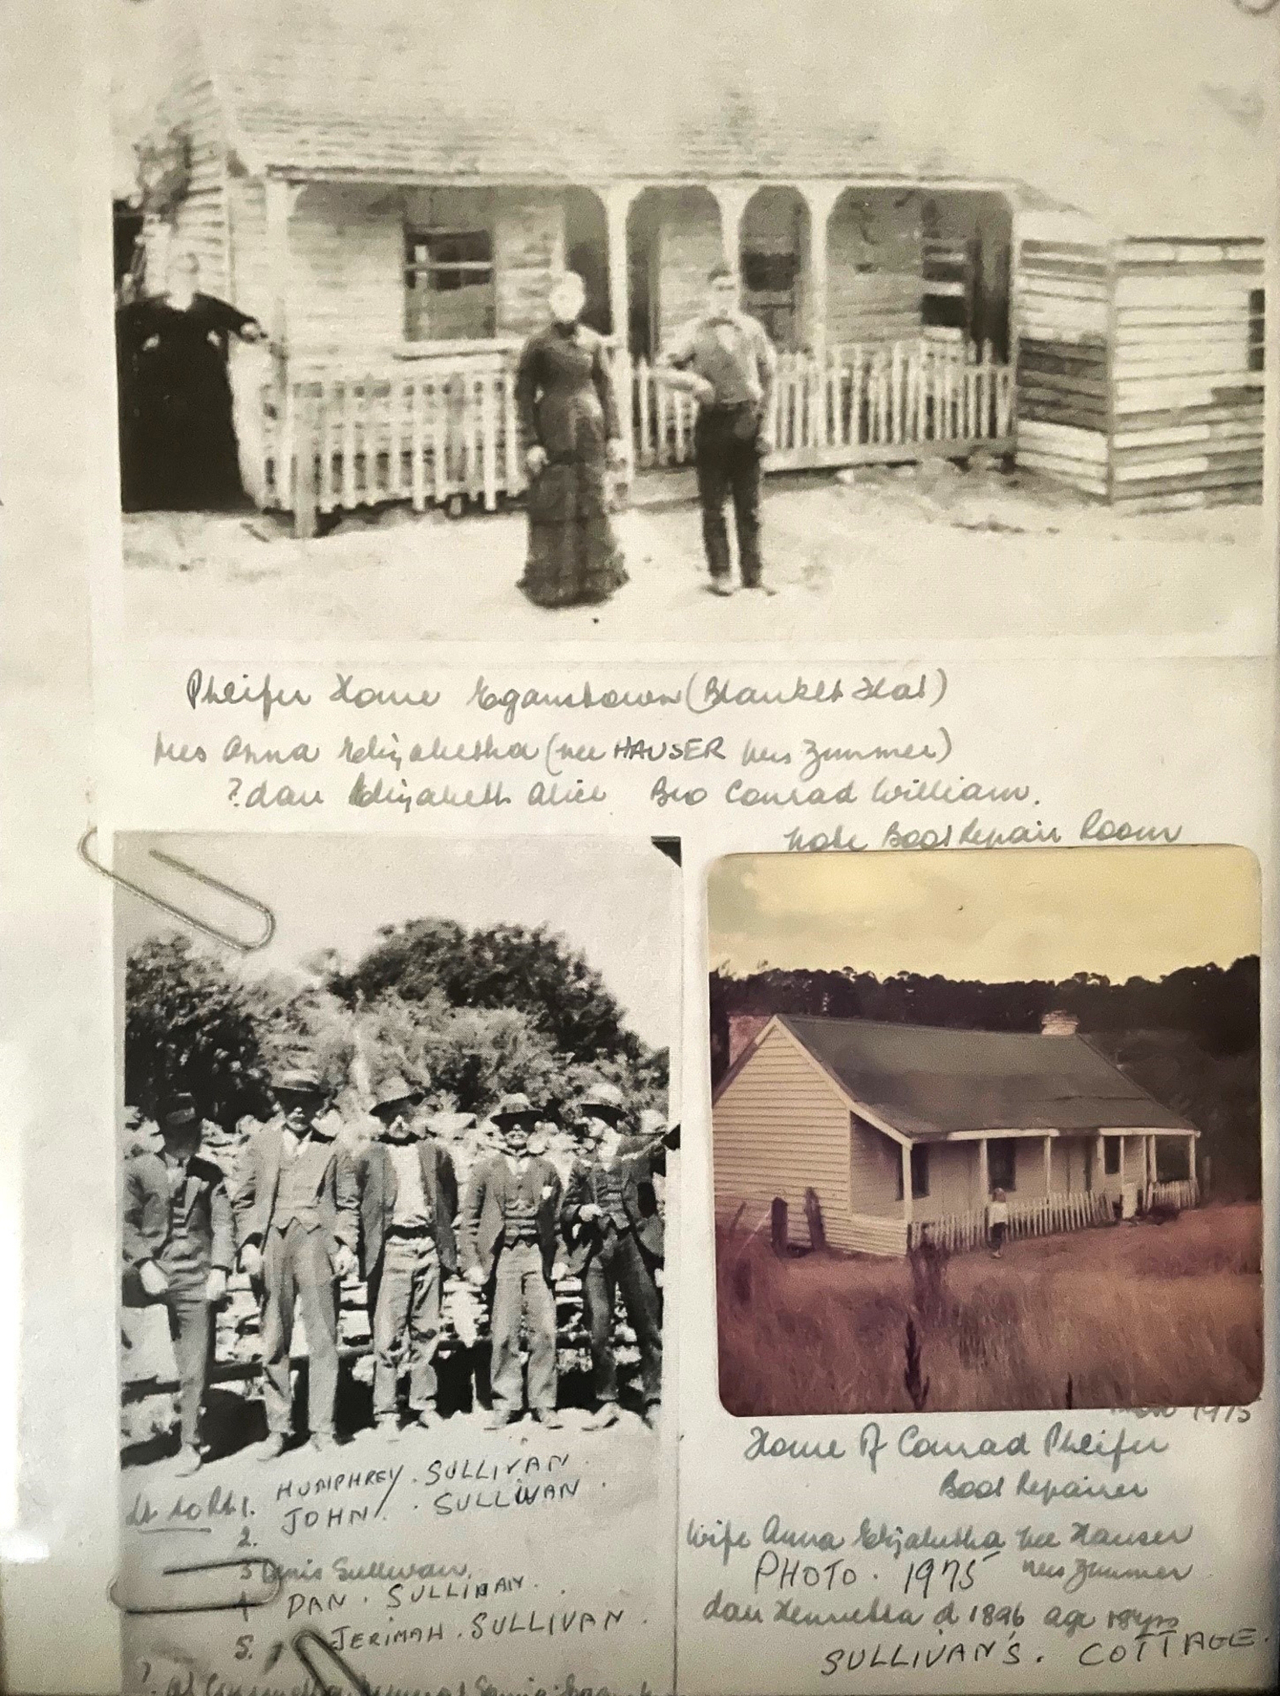 Pheifer Home Eganstown (Blanket Flat)
Mrs Anna Elizabetha (nee HAUSER Mrs Zimmer)
? dau Elizabeth Alice Bro Conrad William.
Note Boot Repair Room
1975
Home of Conrad Pheifer
Boot Repairer
Wife Anna Elizabetha nee Hauser
PHOTO. 1975 Mrs Zimmer
dau Henrietta d 1896 age 18yrs
SULLIVAN'S. COTTAGE.
Lt to Rt 1. HUMPHREY. SULLIVAN.
2. JOHN. SULLIVAN.
3 Denis Sullivan.
4 DAN. SULLIVAN.
5. JERIMAH. SULLIVAN.
? at